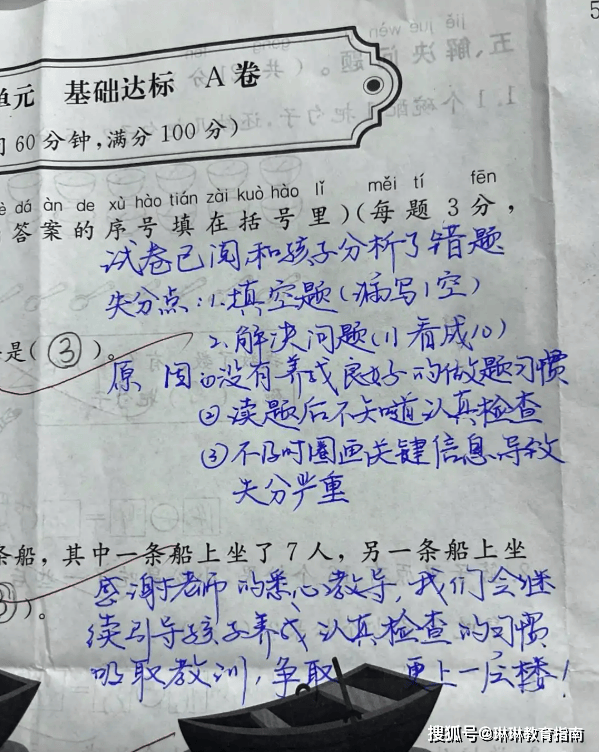 5
单元 基础达标 A卷
60分钟,满分100分)
dá àn de xù hào tián zài kuò hào lǐ měi tí fēn
答案的序号填在括号里)(每题3分,
试卷已阅,和孩子分析了错题
失分点:1.填空题(漏写1空)
2.解决问题(11看成10)
是(③)。
原因①没有养成良好的做题习惯
②读题后不知道认真检查
③不及时圈画关键信息导致
失分严重
条船,其中一条船上坐了7人,另一条船上坐
)。
感谢老师的悉心教导,我们会继
续引导孩子养成认真检查的习惯
吸取教训,争取 更上一层楼!
搜狐号@琳琳教育指南